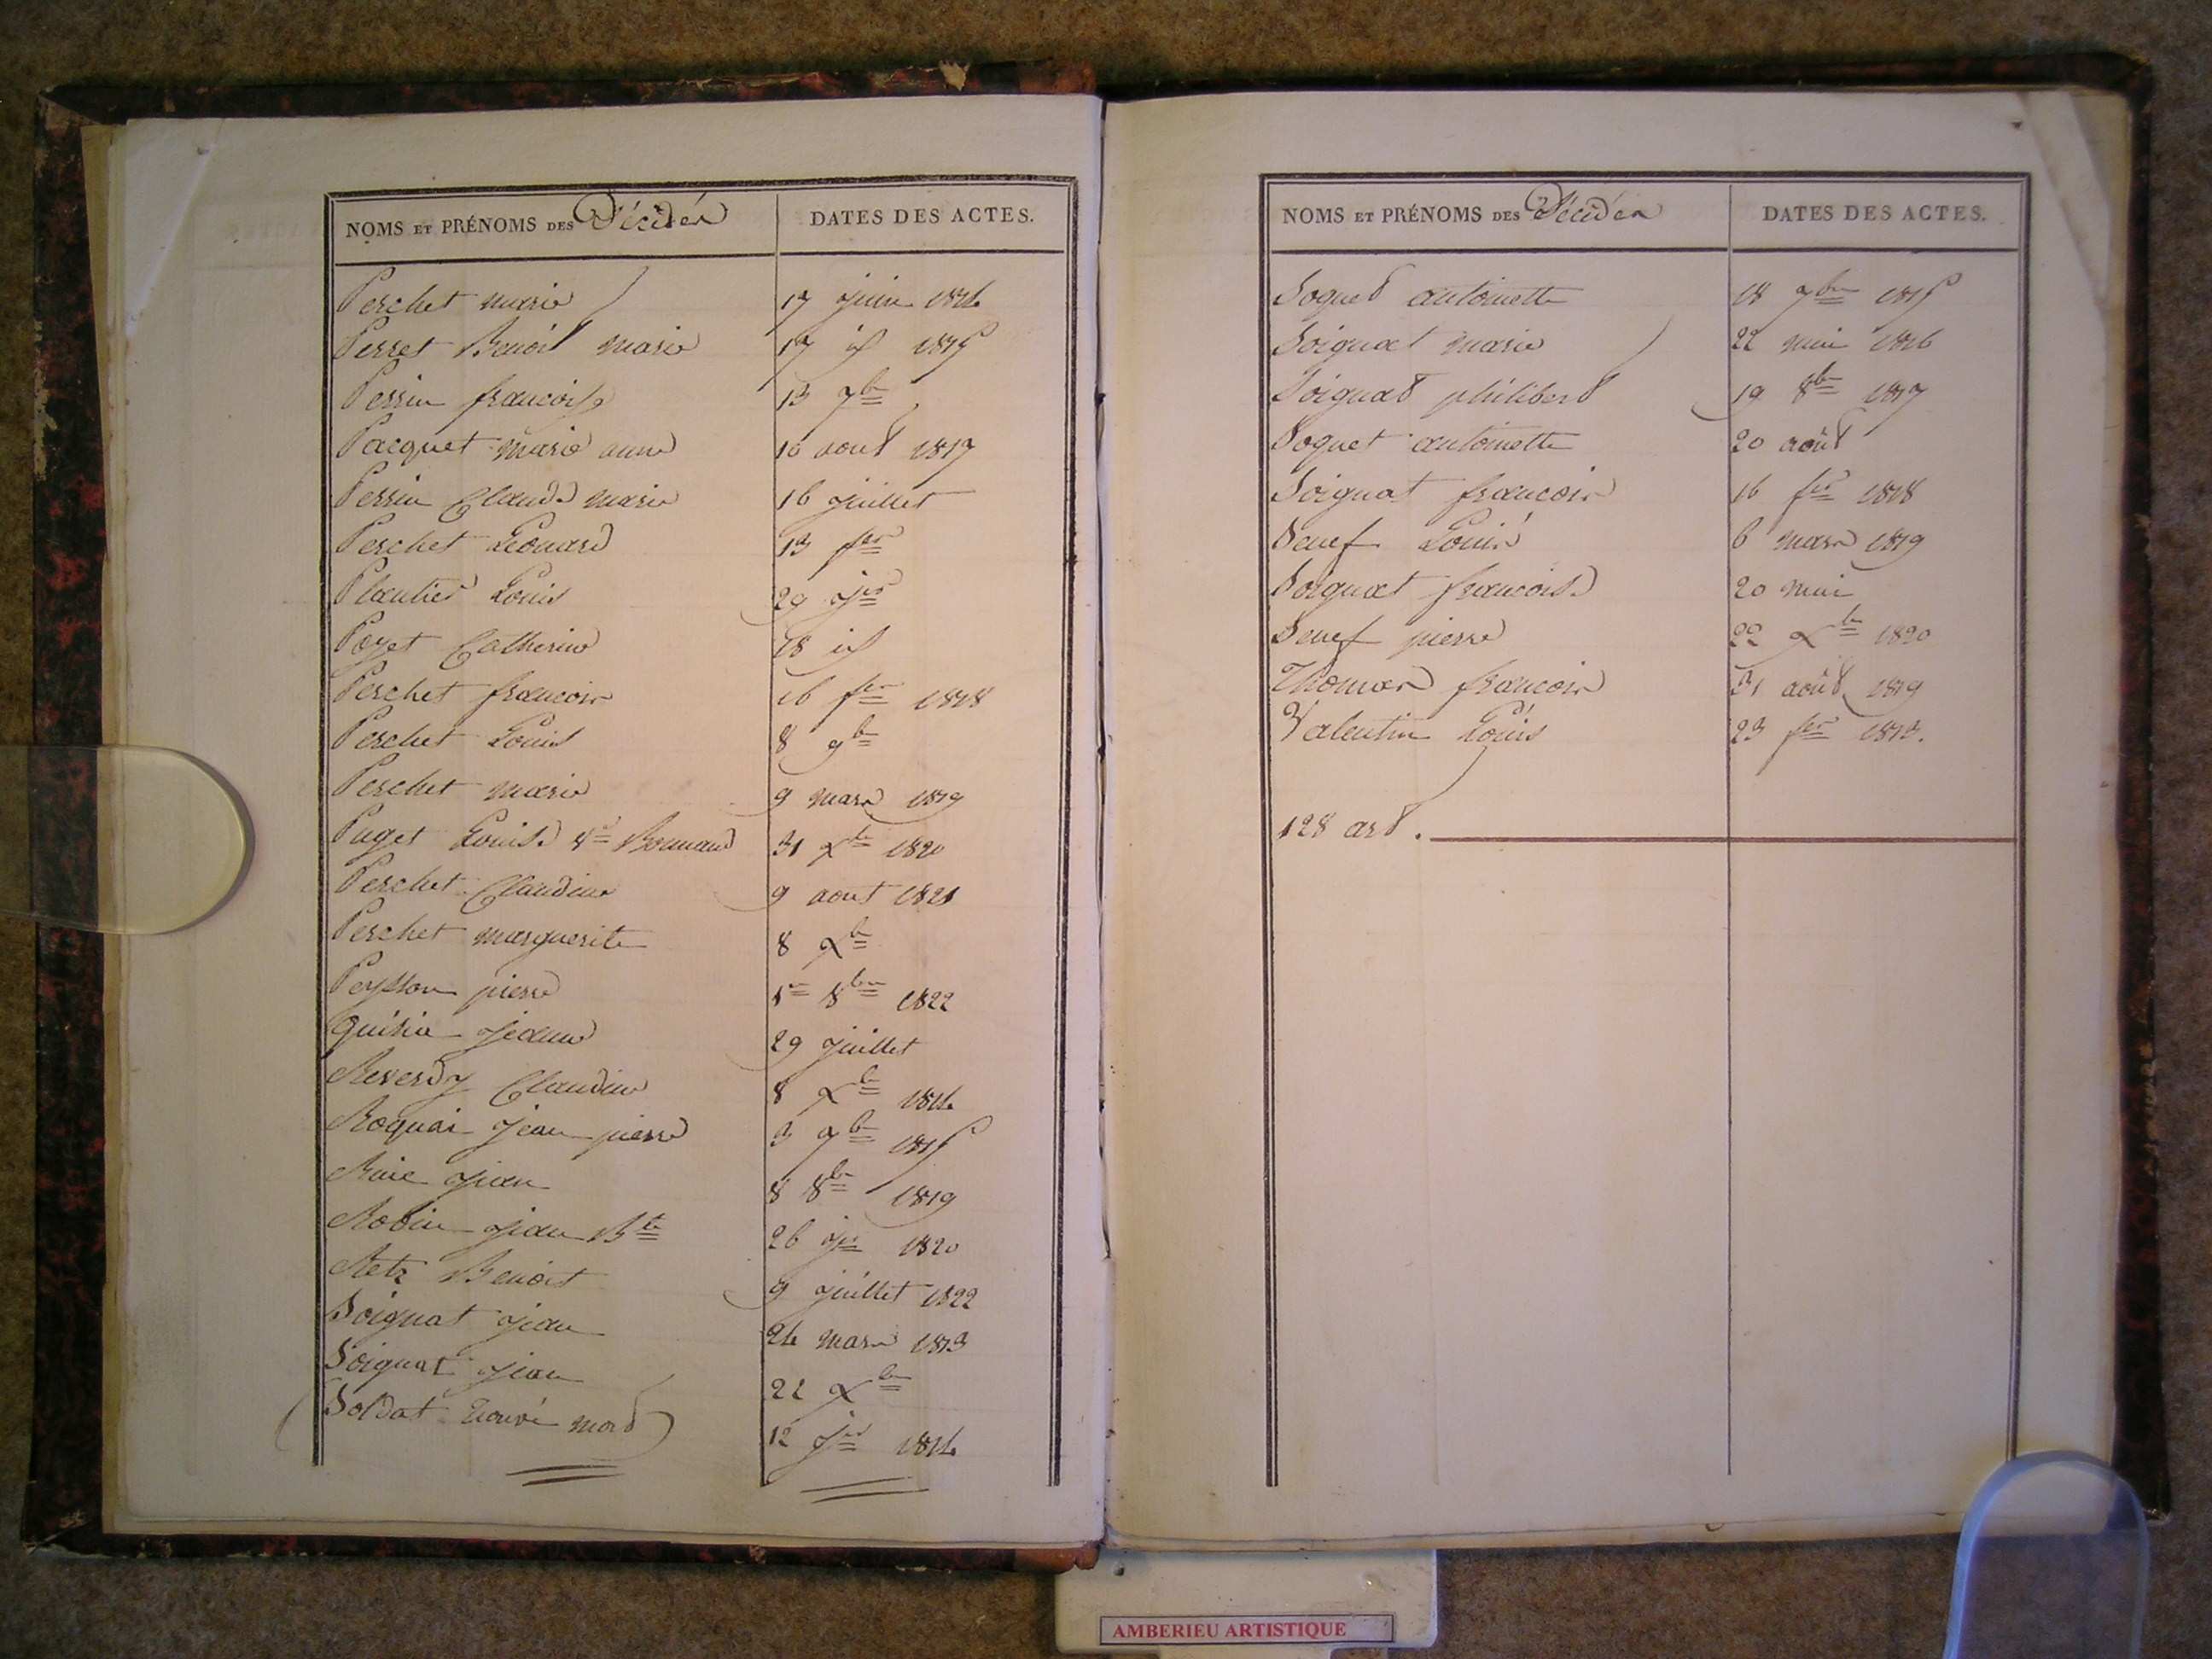 NOMS ET PRÉNOMS DES Décédés DATES DES ACTES.
Perchet marie 17 juin 1814
Perret Benoit marie 17 id 1815
Perrin francoise 13 7bre
Pacquet marie anne 10 aout 1817
Perrin Claude marie 16 juillet
Perchet Léonard 13 fer
Plantier Louis 29 jer
Poyet Catherine 18 id
Perchet francois 16 fer 1818
Perchet Louis 8 9bre
Perchet marie 9 mars 1819
Puget Louise Ve Bonnard 31 Xbre 1820
Perchet Claudine 9 aout 1821
Perchet marguerite 8 Xbre
Peysson pierre 1er 8bre 1822
Quisia jeanne 29 juillet
Reverdy Claudine 8 Xbre 1814
Roquai jean pierre 3 7bre 1815
jean 8 8bre 1819
Robin jean Bte 26 jer 1820
Retz Benoit 9 juillet 1822
Soignat jean 24 mars 1813
Soignat jean 22 Xbre
(Soldat trouvé mort) 12 jer 1814
NOMS ET PRÉNOMS DES Décédés DATES DES ACTES.
Soquet antoinette 18 7bre 1815
Soignat marie 22 mai 1816
Soignat philibert 19 8bre 1817
Soquet antoinette 20 août
Soignat francois 16 fer 1818
Seuef Louis 6 mars 1819
Soignat francoise 20 mai
Seuef pierre 22 Xbre 1820
Thomas francois 31 août 1819
Valentin Louis 23 fer 1813.
128 art.
AMBERIEU ARTISTIQUE